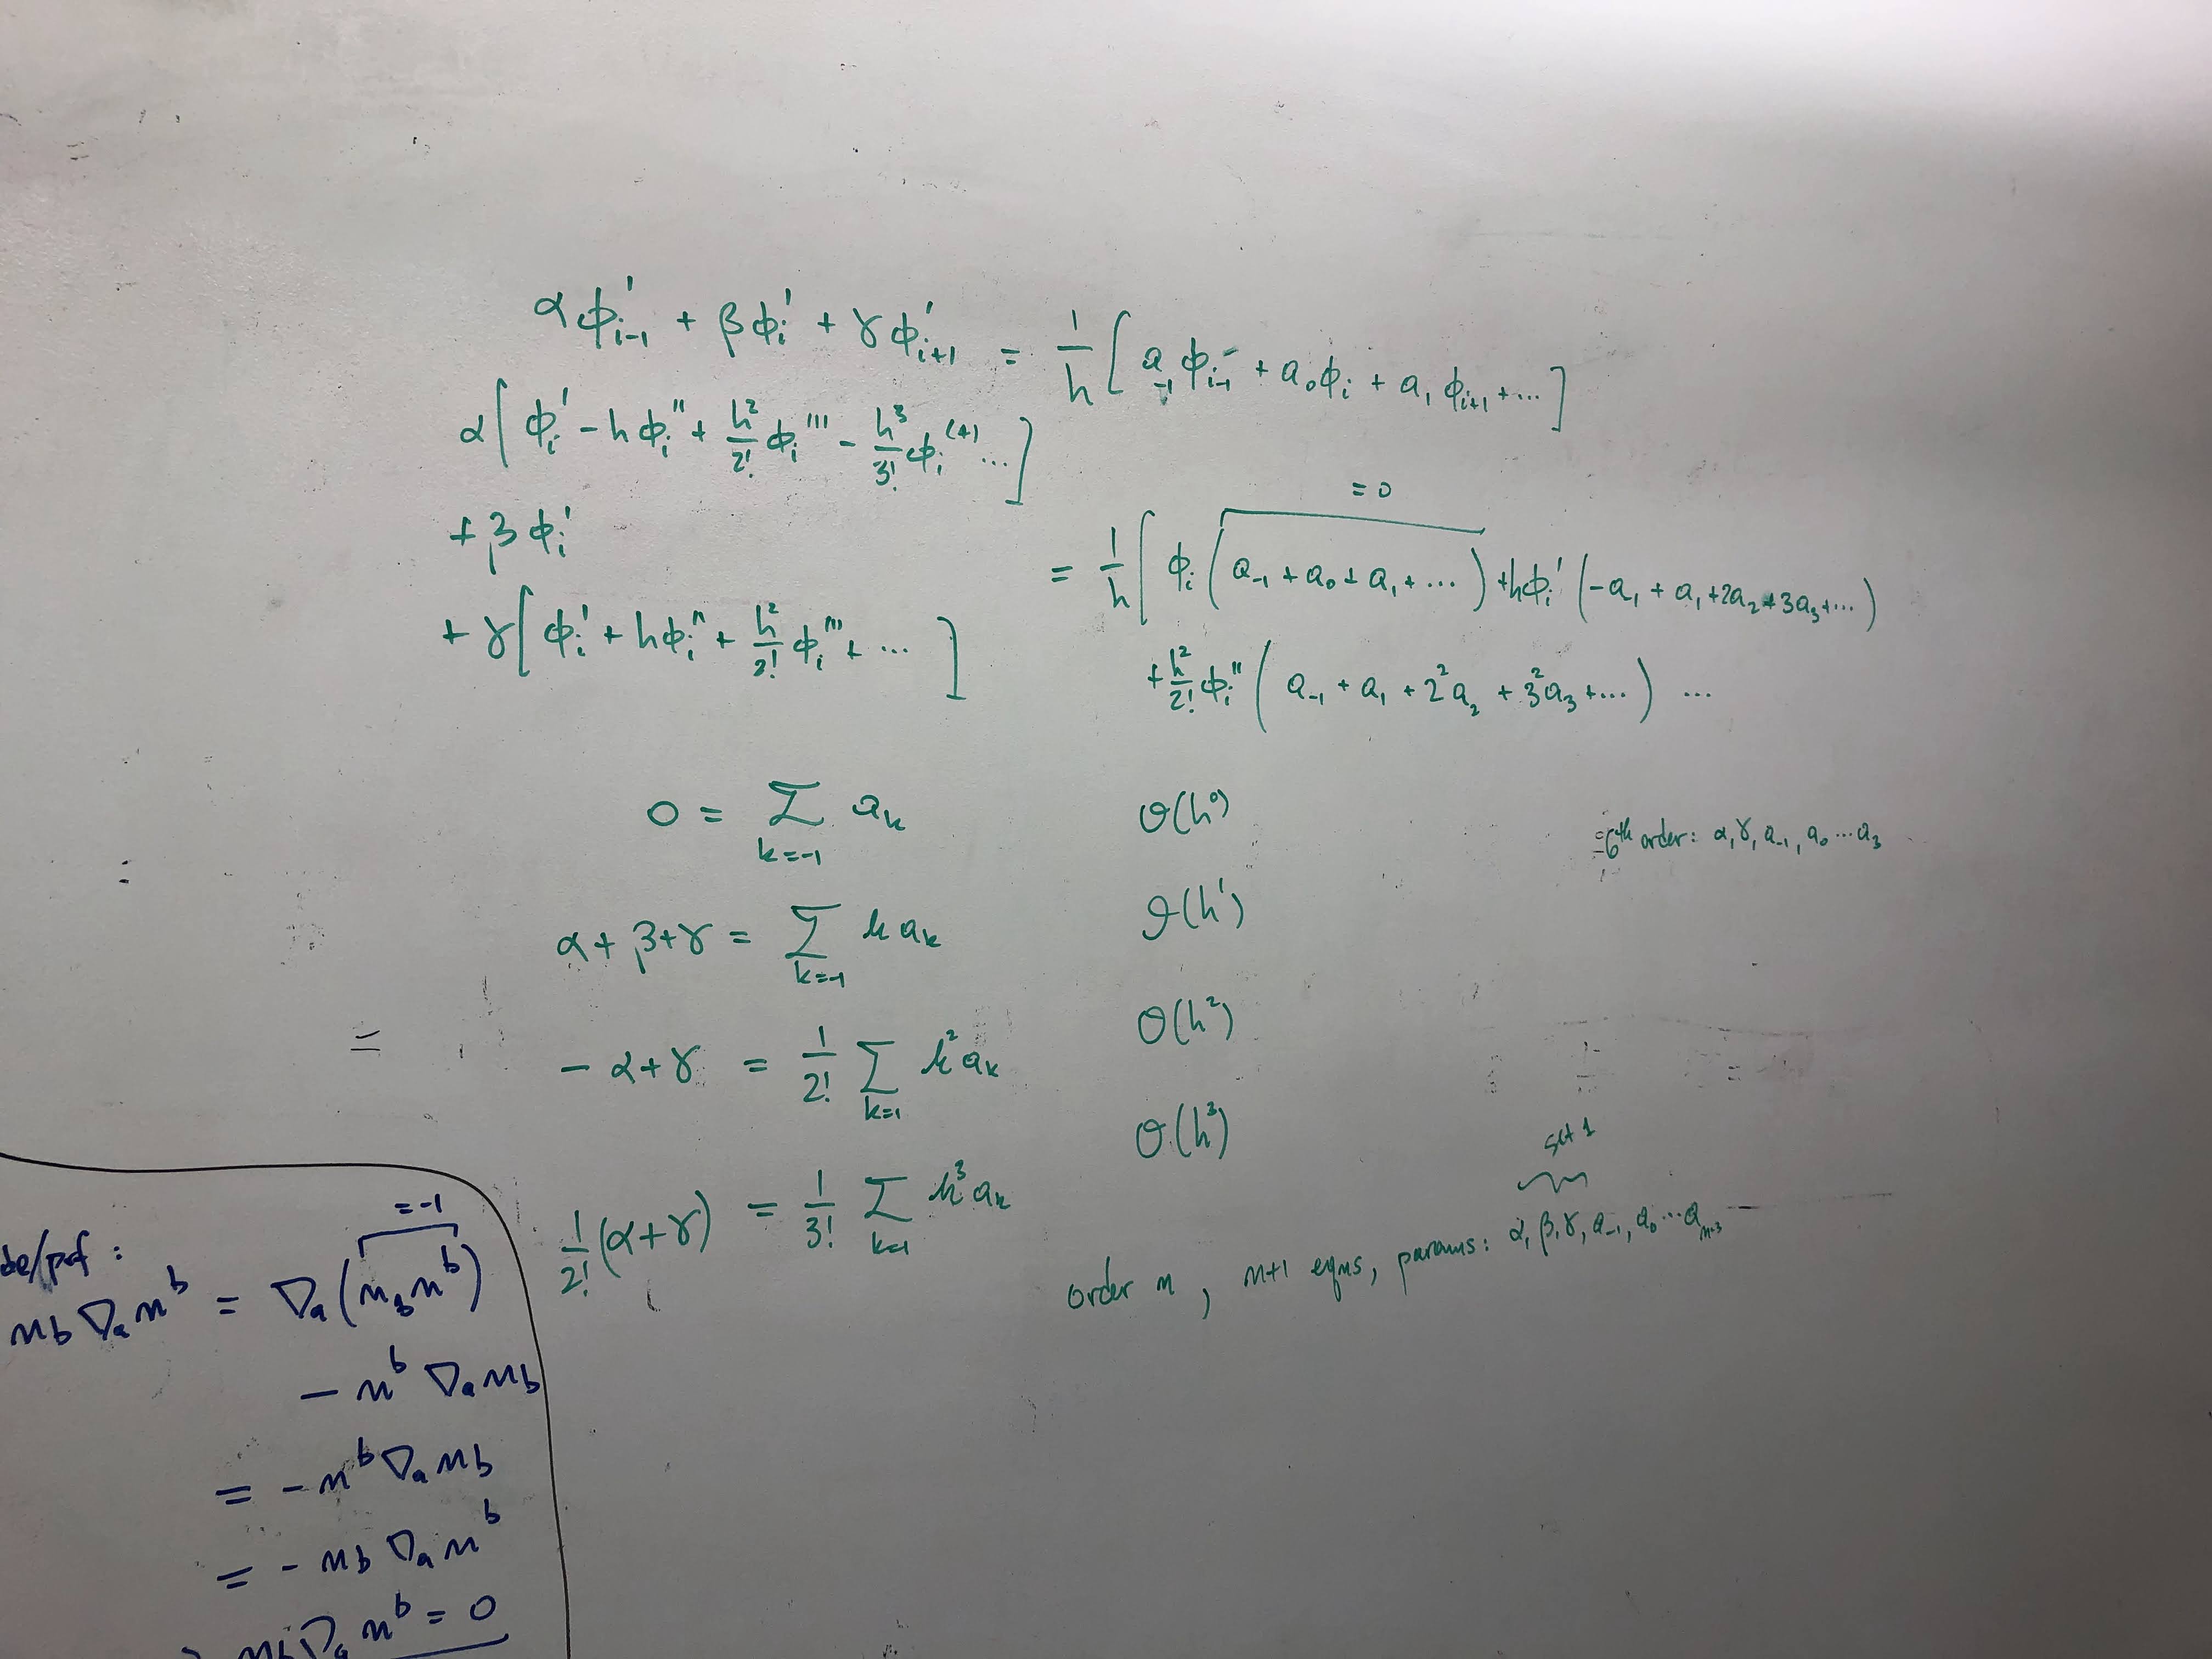 αϕ'ᵢ₋₁ + βϕᵢ' + γϕ'ᵢ₊₁ = 1/h [a₋₁ϕᵢ₋₁ + a₀ϕᵢ + a₁ϕᵢ₊₁ + ...]
α[ϕᵢ' - hϕᵢ'' + h²/2! ϕᵢ''' - h³/3! ϕᵢ⁽⁴⁾ ...]
+ βϕᵢ'
+ γ[ϕᵢ' + hϕᵢ'' + h²/2! ϕᵢ''' + ...]
= 0
= 1/h [ϕᵢ (a₋₁ + a₀ + a₁ + ...) + hϕᵢ' (-a₁ + a₁ + 2a₂ + 3a₃ + ...)
+ h²/2! ϕᵢ'' (a₋₁ + a₁ + 2²a₂ + 3²a₃ + ...) ...
0 = Σ_{k=-1} aₖ O(h⁰)
α + β + γ = Σ_{k=-1} k aₖ O(h¹)
- α + γ = 1/2! Σ_{k=1} k² aₖ O(h²)
1/2! (α + γ) = 1/3! Σ_{k=1} k³ aₖ O(h³)
6th order: α, γ, a₋₁, a₀ ... a₃
set 1
order n, n+1 eqns, params: α, β, γ, a₋₁, a₀ ... aₙ₋₃
= -1
n_b ∇ₐ n^b = ∇ₐ (n_b n^b)
- n^b ∇ₐ n_b
= - n^b ∇ₐ n_b
= - n_b ∇ₐ n^b
n_b ∇ₐ n^b = 0